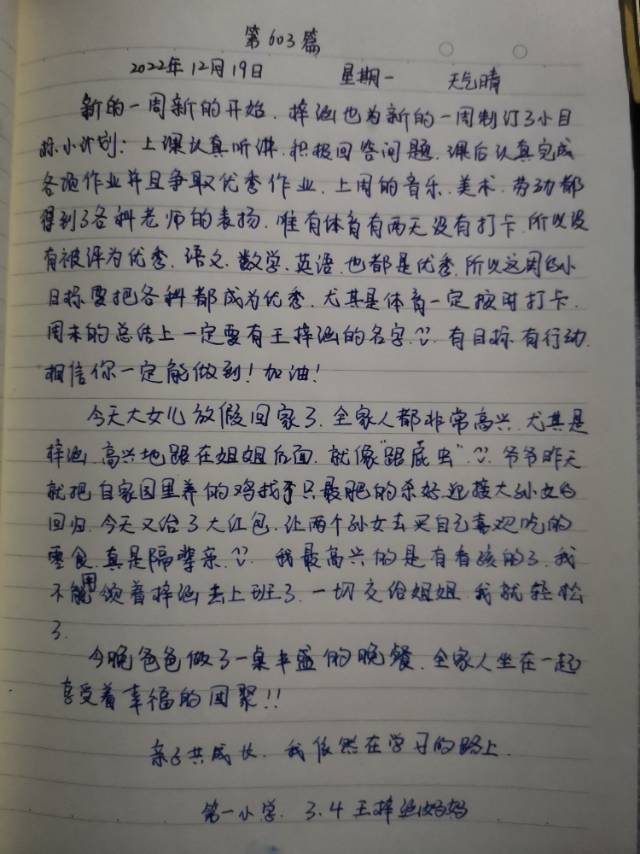 第603篇
2022年12月19日 星期一 天气晴
新的一周新的开始,梓涵也为新的一周制订了小目
标小计划:上课认真听讲.积极回答问题.课后认真完成
各项作业并且争取优秀作业.上周的音乐.美术.劳动都
得到了各科老师的表扬.唯有体育有两天没有打卡.所以没
有被评为优秀.语文.数学.英语.也都是优秀.所以这周的小
目标要把各科都成为优秀.尤其是体育一定按时打卡.
周末的总结上一定要有王梓涵的名字.有目标.有行动.
相信你一定能做到!加油!
今天大女儿放假回家了.全家人都非常高兴.尤其是
梓涵.高兴地跟在姐姐后面.就像"跟屁虫".爷爷昨天
就把自家园里养的鸡找了只最肥的杀好迎接大孙女的
回归.今天又给了大红包.让两个孙女去买自己喜欢吃的
零食.真是隔辈亲.我最高兴的是有看孩的了.我
不用领着梓涵去上班了.一切交给姐姐.我就轻松
了.
今晚爸爸做了一桌丰盛的晚餐.全家人坐在一起
享受着幸福的团聚!!
亲子共成长.我依然在学习的路上.
第一小学.3.4王梓涵妈妈